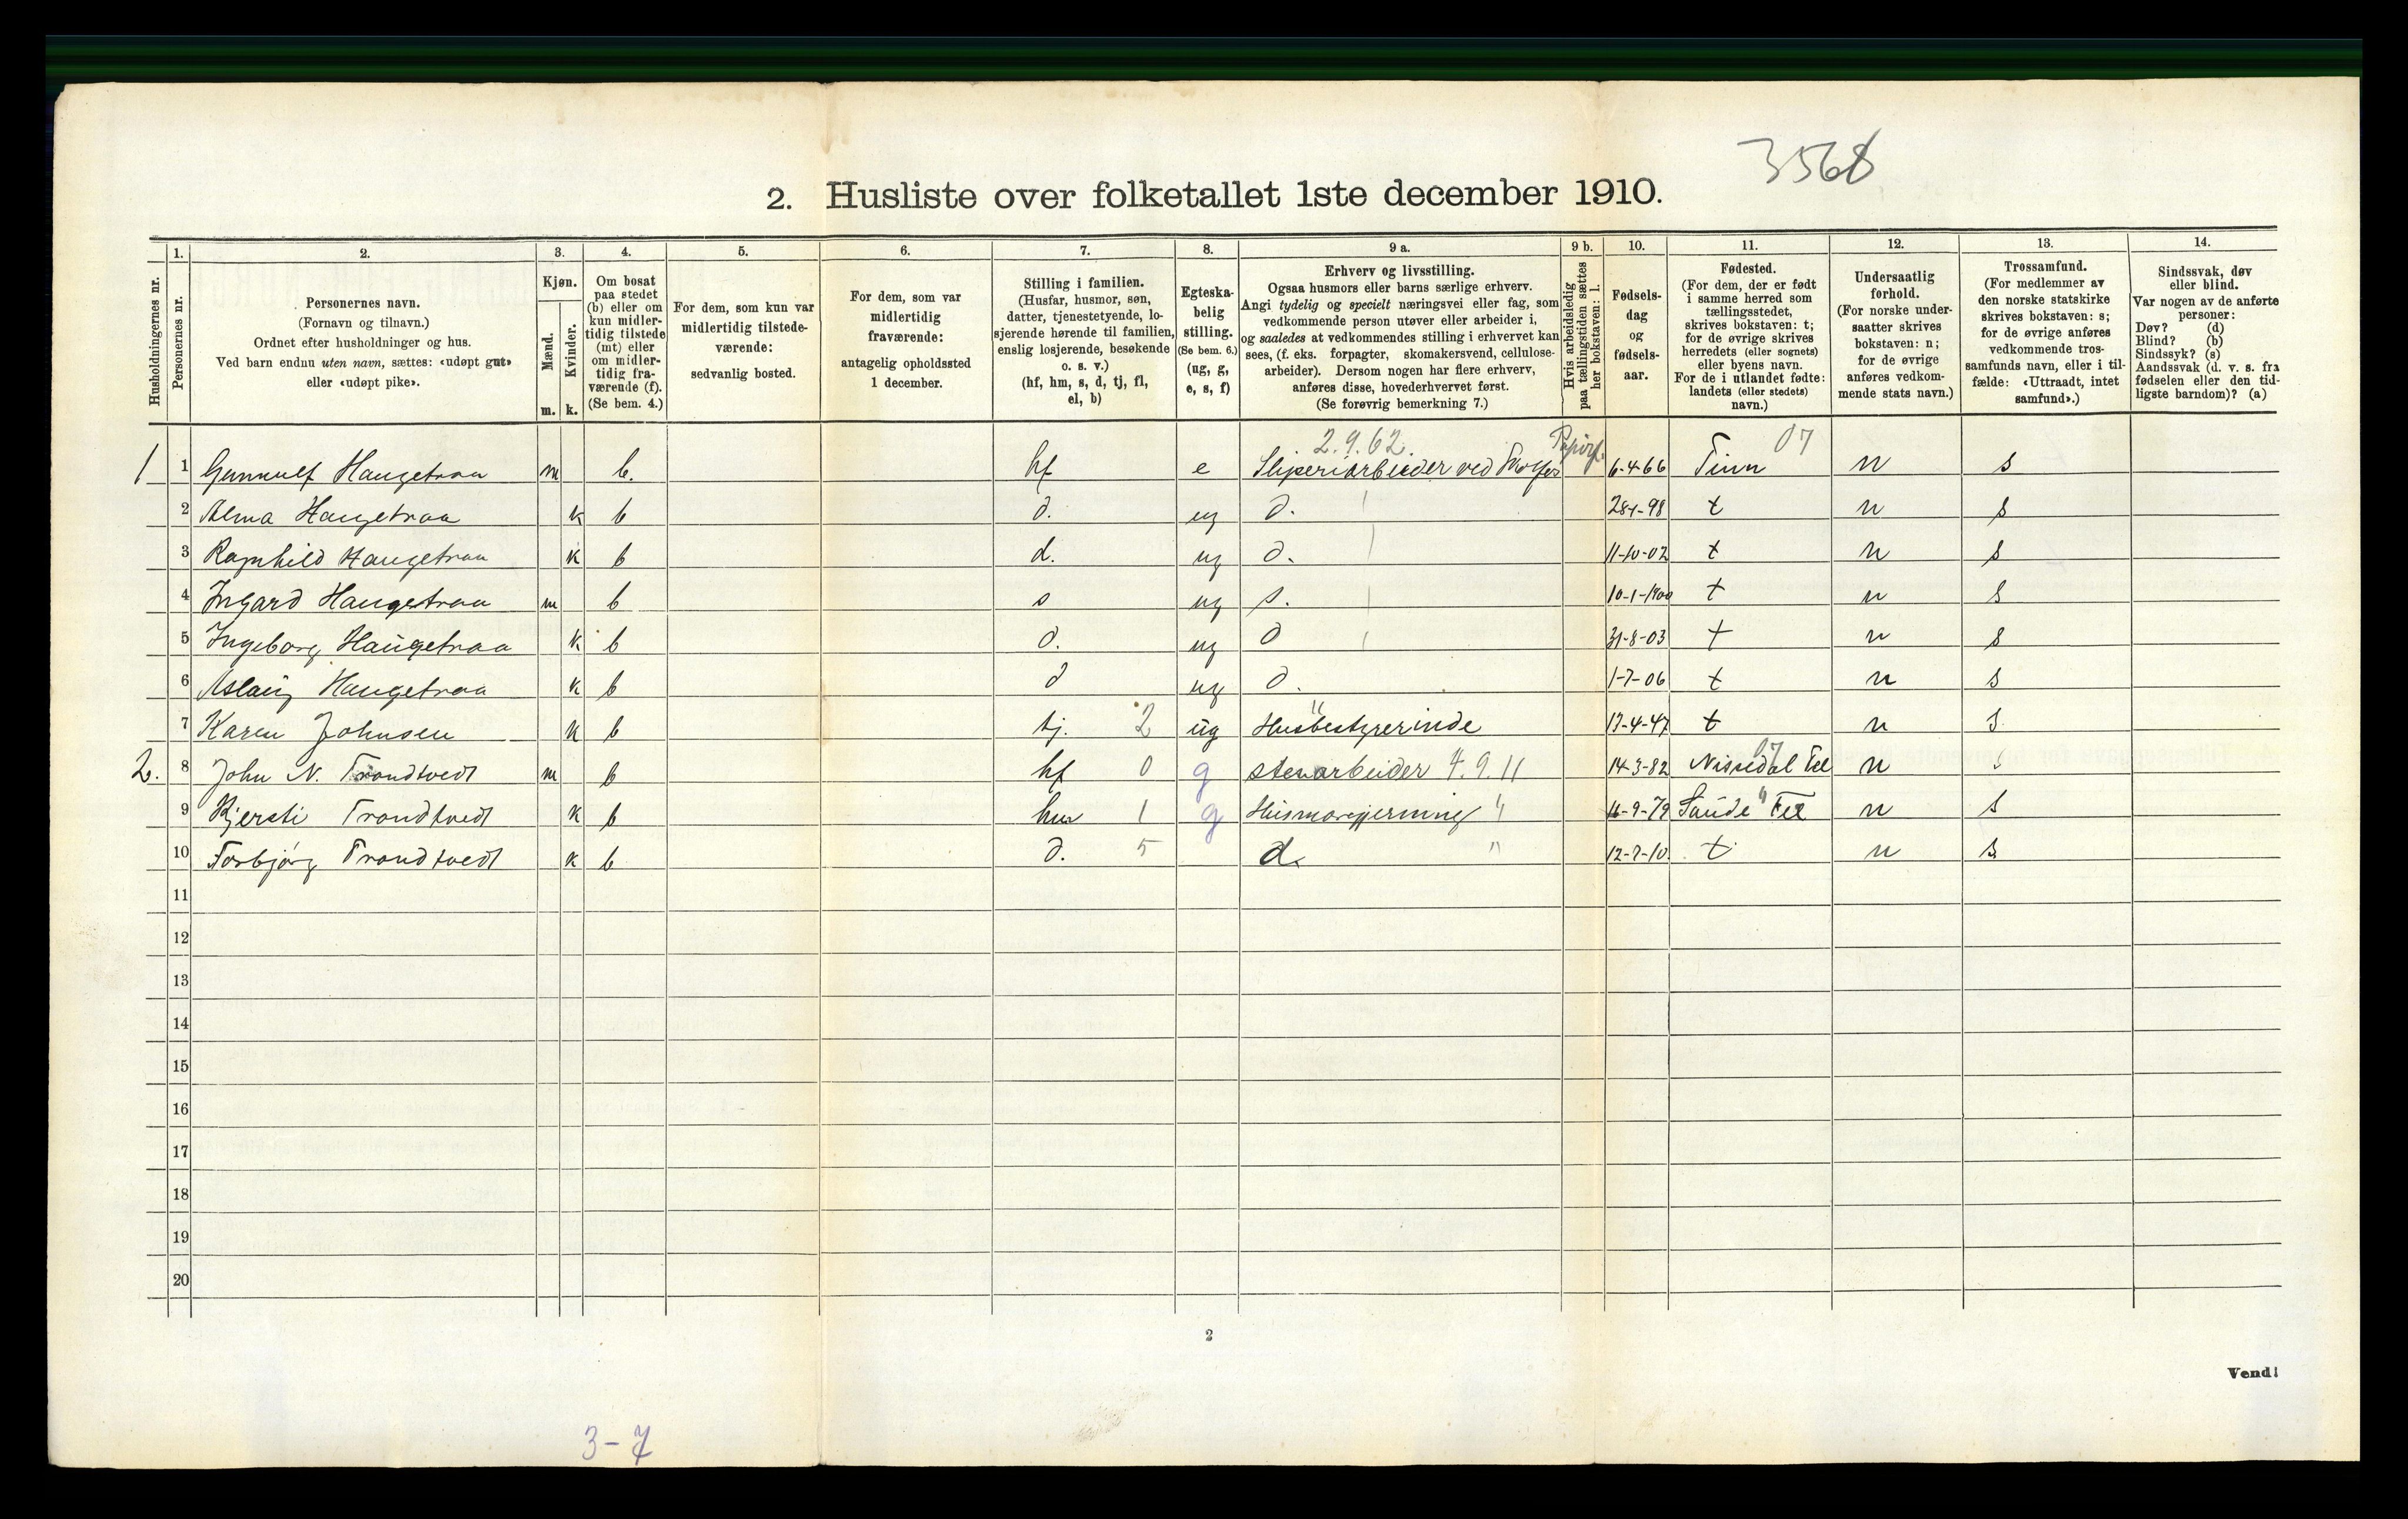 3568
2. Husliste over folketallet 1ste december 1910.
Husholdningernes nr.
1. Personernes nr.
2. Personernes navn.
(Fornavn og tilnavn.)
Ordnet efter husholdninger og hus.
Ved barn endnu uten navn, sættes: «udøpt gut»
eller «udøpt pike».
3. Kjøn.
Mænd. m.
Kvinder. k.
4. Om bosat
paa stedet
(b) eller om
kun midler-
tidig tilstede
(mt) eller
om midler-
tidig fra-
værende (f).
(Se bem. 4.)
5. For dem, som kun var
midlertidig tilstede-
værende:
sedvanlig bosted.
6. For dem, som var
midlertidig
fraværende:
antagelig opholdssted
1 december.
7. Stilling i familien.
(Husfar, husmor, søn,
datter, tjenestetyende, lo-
sjerende hørende til familien,
enslig losjerende, besøkende
o. s. v.)
(hf, hm, s, d, tj, fl,
el, b)
8. Egteska-
belig
stilling.
(Se bem. 6.)
(ug, g,
e, s, f)
9 a. Erhverv og livsstilling.
Ogsaa husmors eller barns særlige erhverv.
Angi tydelig og specielt næringsvei eller fag, som
vedkommende person utøver eller arbeider i,
og saaledes at vedkommendes stilling i erhvervet kan
sees, (f. eks. forpagter, skomakersvend, cellulose-
arbeider). Dersom nogen har flere erhverv,
anføres disse, hovederhvervet først.
(Se forøvrig bemerkning 7.)
9 b. Hvis arbeidsledig
paa tællingstiden sættes
her bokstaven: l.
10. Fødsels-
dag
og
fødsels-
aar.
11. Fødested.
(For dem, der er født
i samme herred som
tællingsstedet,
skrives bokstaven: t;
for de øvrige skrives
herredets (eller sognets)
eller byens navn.
For de i utlandet fødte:
landets (eller stedets)
navn.)
12. Undersaatlig
forhold.
(For norske under-
saatter skrives
bokstaven: n;
for de øvrige
anføres vedkom-
mende stats navn.)
13. Trossamfund.
(For medlemmer av
den norske statskirke
skrives bokstaven: s;
for de øvrige anføres
vedkommende tros-
samfunds navn, eller i til-
fælde: «Uttraadt, intet
samfund».)
14. Sindssvak, døv
eller blind.
Var nogen av de anførte
personer:
Døv? (d)
Blind? (b)
Sindssyk? (s)
Aandssvak (d. v. s. fra
fødselen eller den tid-
ligste barndom)? (a)
2.9.62. 07
1 1 Gunnulf Haugetraa m b. hf e Sliperiarbeider ved 6-4-66 Tinn n s
2 Alma Haugetraa k b d. ug d. 28-1-98 t n s
3 Ragnhild Haugetraa k b d. ug d. 11-10-02 t n s
4 Ingard Haugetraa m b s ug s. 10-1-1900 t n s
5 Ingeborg Haugetraa k b d. ug d 31-8-03 t n s
6 Aslaug Haugetraa k b d ug d. 1-7-06 t n s
7 Karen Johnsen k b tj. 2 ug Husbestyrerinde 17-4-47 t n s
2. 8 John N. Trondtvedt m b hf 0 g stenarbeider 4.9.11 14-3-82 Nissedal Tel n s
9 Kjersti Trondtvedt k b hm 1 g Husmorgjerning " 16-9-79 Saude " Tel n s
10 Torbjørg Trondtvedt k b d. 5 d. " 12-7-10. t n s
11
12
13
14
15
16
17
18
19
20
2
Vend!
3-7